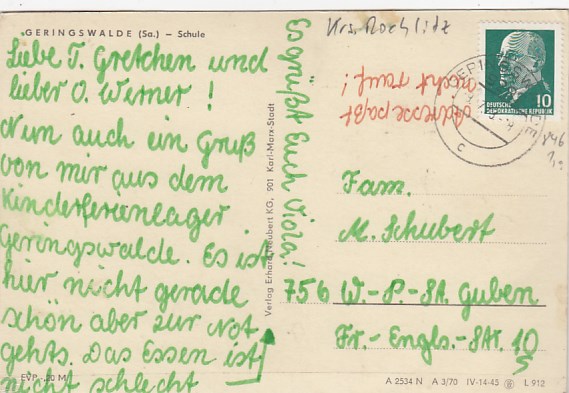 GERINGSWALDE (Sa.) – Schule
Liebe T. Gretchen und
lieber O. Werner !
Nun auch ein Gruß
von mir aus dem
Kinderferienlager
Geringswalde. Es ist
hier nicht gerade
schön aber zur Not
gehts. Das Essen ist
nicht schlecht
Es grüßt Euch Viola!
Krs. Rochlitz
Adresse paßt
nicht rauf!
DEUTSCHE
DEMOKRATISCHE REPUBLIK
10
Fam.
M. Schubert
756 W.-P.-St. Guben
Fr.-Engls.-Str. 10
Verlag Erhard Neubert KG, 901 Karl-Marx-Stadt
EVP -,20 M
A 2534 N A 3/70 IV-14-45 L 912